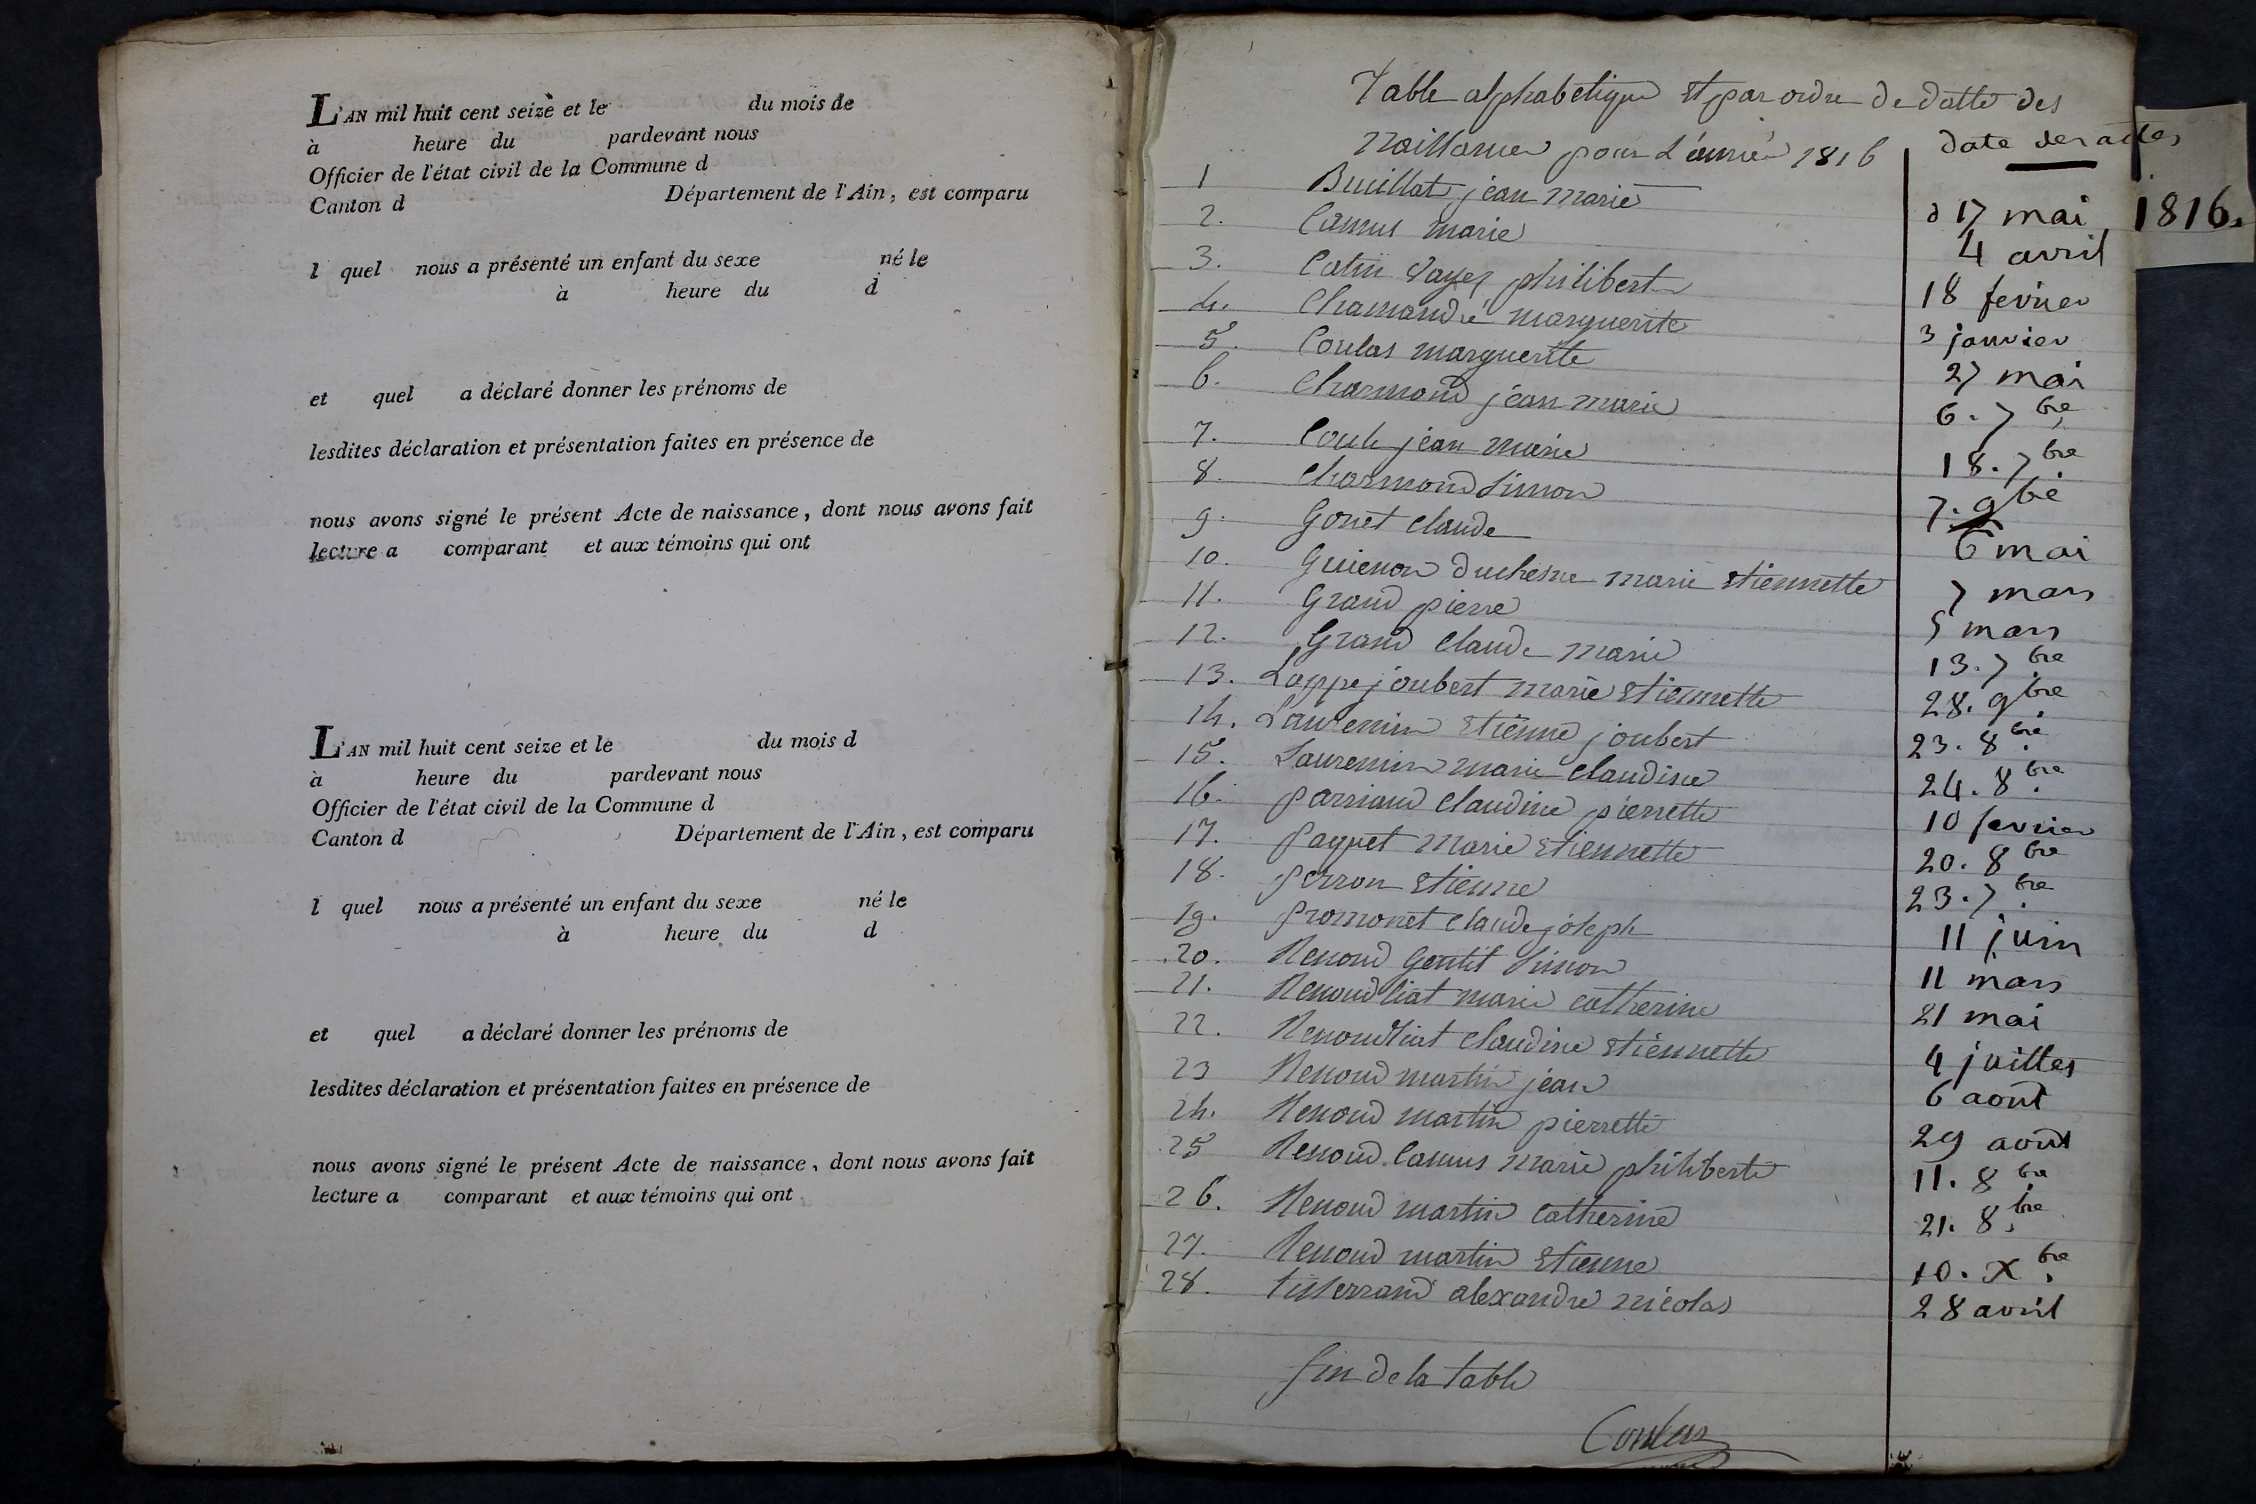 L'AN mil huit cent seize et le du mois de
à heure du pardevant nous
Officier de l'état civil de la Commune d
Canton d Département de l'Ain, est comparu
l quel nous a présenté un enfant du sexe né le
à heure du d
et quel a déclaré donner les prénoms de
lesdites déclaration et présentation faites en présence de
nous avons signé le présent Acte de naissance, dont nous avons fait
lecture a comparant et aux témoins qui ont
L'AN mil huit cent seize et le du mois d
à heure du pardevant nous
Officier de l'état civil de la Commune d
Canton d Département de l'Ain, est comparu
l quel nous a présenté un enfant du sexe né le
à heure du d
et quel a déclaré donner les prénoms de
lesdites déclaration et présentation faites en présence de
nous avons signé le présent Acte de naissance, dont nous avons fait
lecture a comparant et aux témoins qui ont
Table alphabetique et par ordre de datte des
naissances pour l'année 1816 date des actes
1 Buillat jean marie 17 mai 1816.
2. Camus marie 4 avril
3. Catin philibert 18 fevrier
4. Chamandré marguerite 3 janvier
5. Coulas marguerite 27 mai
6. Charmond jean marie 6. 7bre
7. jean marie 18. 7bre
8. Charmond Simon 7. 9bre
9. Gonet Claude 6 mai
10. Guienon duchesne marie etiennette 7 mars
11. Grand pierre 5 mars
12. Grand Claude marie 13. 7bre
13. Lappe joubert marie etiennette 28. 9bre
14. Laurencin etienne joubert 23. 8bre
15. Laurencin marie Claudine 24. 8bre
16. parriaud Claudine pierrette 10 fevrier
17. paquet marie etiennette 20. 8bre
18. perron etienne 23. 7bre
19. promonet Claude joseph 11 juin
20. Renoud Gentit Simon 11 mars
21. Renoud liat marie catherine 21 mai
22. Renoud liat Claudine etiennette 4 juillet
23 Renoud martin jean 6 aout
24. Renoud martin pierrette 29 aout
25 Renoud Camus marie philiberte 11. 8bre
26. Renoud martin Catherine 21. 8bre
27. Renoud martin etienne 10. Xbre
28. tisserrand alexandre nicolas 28 avril
fin de la table
Coulas